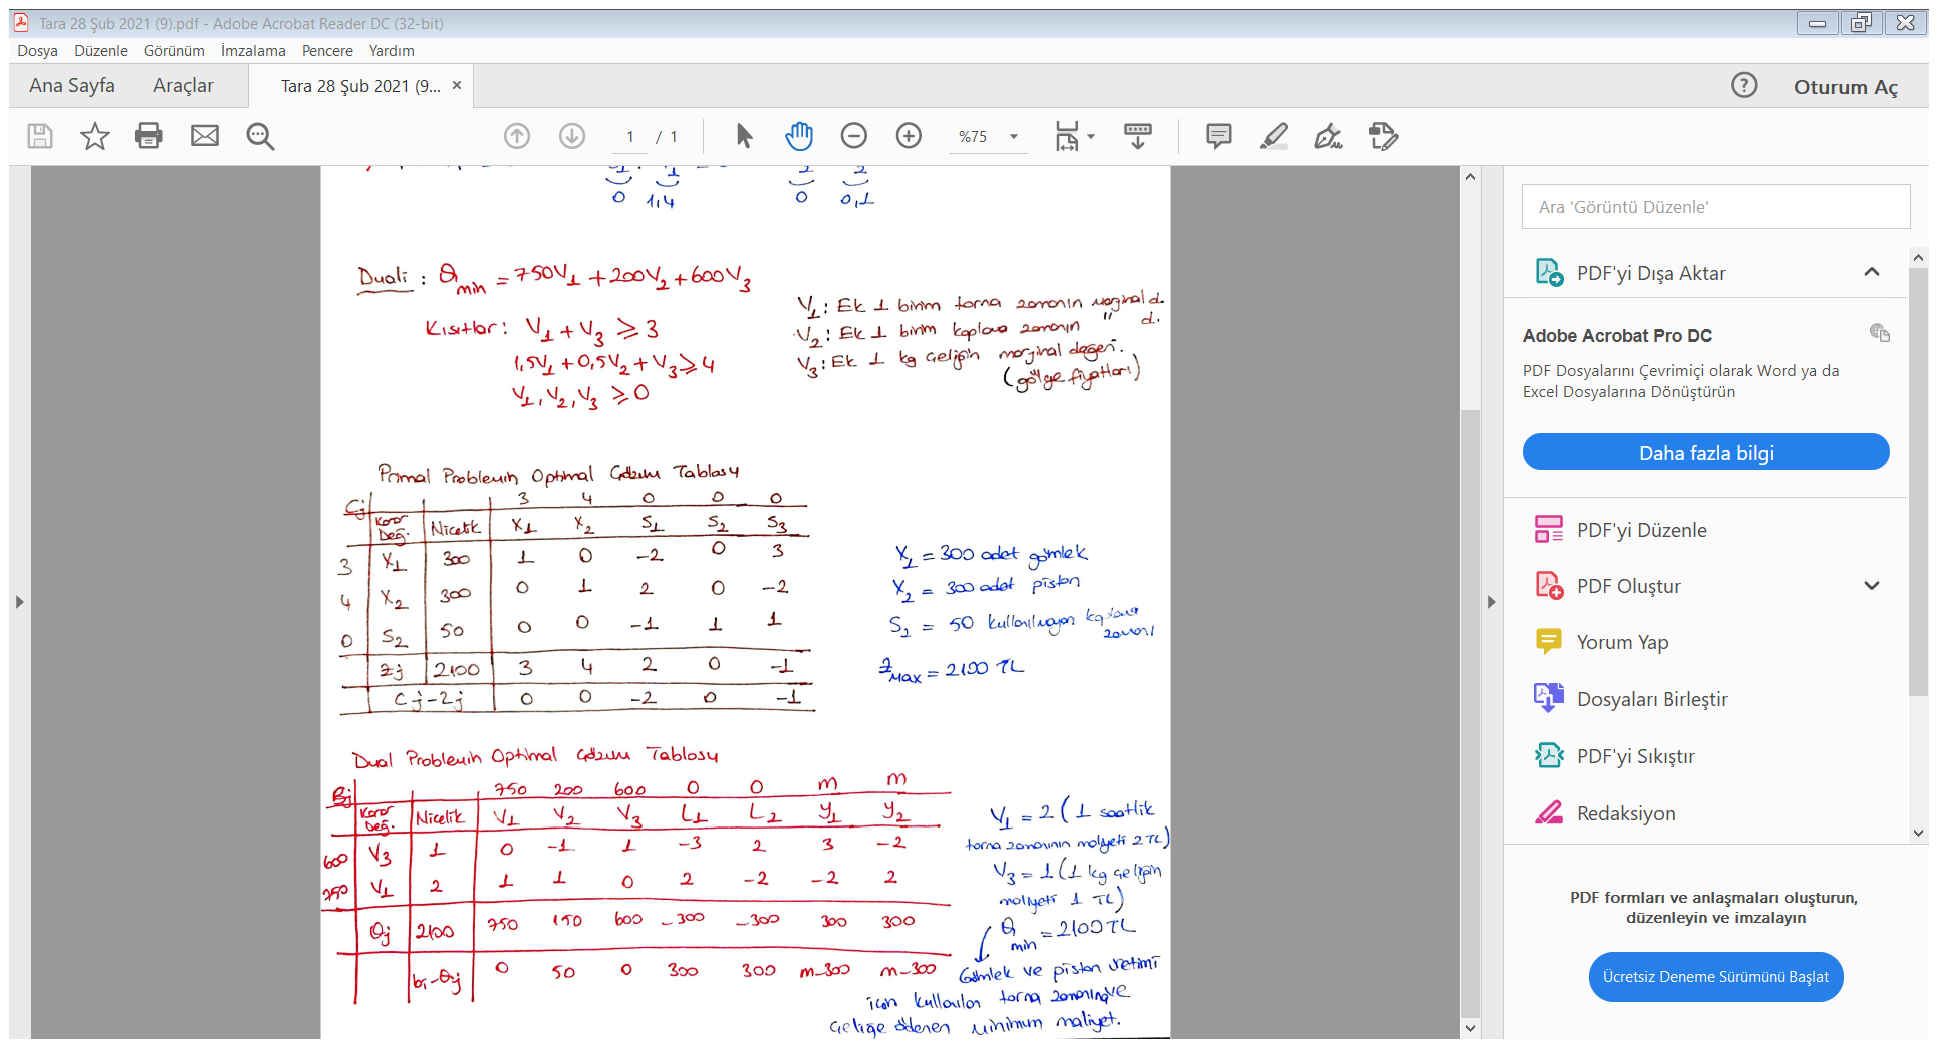 Tara 28 Şub 2021 (9).pdf - Adobe Acrobat Reader DC (32-bit)
Dosya Düzenle Görünüm İmzalama Pencere Yardım
Ana Sayfa Araçlar Tara 28 Şub 2021 (9... × Oturum Aç
1 / 1 %75
0 1,4 0 0,1
Duali : θmin = 750V1 + 200V2 + 600V3
Kısıtlar: V1 + V3 ≥ 3
1,5V1 + 0,5V2 + V3 ≥ 4
V1, V2, V3 ≥ 0
V1: Ek 1 birim torna zamanın marjinal d.
V2: Ek 1 birim kaplama zamanın " d.
V3: Ek 1 kg çeliğin marjinal değeri.
(gölge fiyatları)
Primal Problemin Optimal Çözüm Tablosu
Cj 3 4 0 0 0
Karar Değ. Nicelik X1 X2 S1 S2 S3
3 X1 300 1 0 -2 0 3
4 X2 300 0 1 2 0 -2
0 S2 50 0 0 -1 1 1
Zj 2100 3 4 2 0 -1
Cj-Zj 0 0 -2 0 -1
X1 = 300 adet gömlek
X2 = 300 adet piston
S2 = 50 kullanılmayan kaplama
zamanı
ZMAX = 2100 TL
Dual Problemin Optimal Çözüm Tablosu
Bj 750 200 600 0 0 m m
Karar Değ. Nicelik V1 V2 V3 L1 L2 y1 y2
600 V3 1 0 -1 1 -3 2 3 -2
750 V1 2 1 1 0 2 -2 -2 2
θj 2100 750 150 600 -300 -300 300 300
bj-θj 0 50 0 300 300 m-300 m-300
V1 = 2 (1 saatlik
torna zamanının maliyeti 2 TL)
V3 = 1 (1 kg çeliğin
maliyeti 1 TL)
θmin = 2100 TL
Gömlek ve piston üretimi
için kullanılan torna zamanına ve
çeliğe ödenen minimum maliyet.
Ara 'Görüntü Düzenle'
PDF'yi Dışa Aktar
Adobe Acrobat Pro DC
PDF Dosyalarını Çevrimiçi olarak Word ya da
Excel Dosyalarına Dönüştürün
Daha fazla bilgi
PDF'yi Düzenle
PDF Oluştur
Yorum Yap
Dosyaları Birleştir
PDF'yi Sıkıştır
Redaksiyon
PDF formları ve anlaşmaları oluşturun,
düzenleyin ve imzalayın
Ücretsiz Deneme Sürümünü Başlat